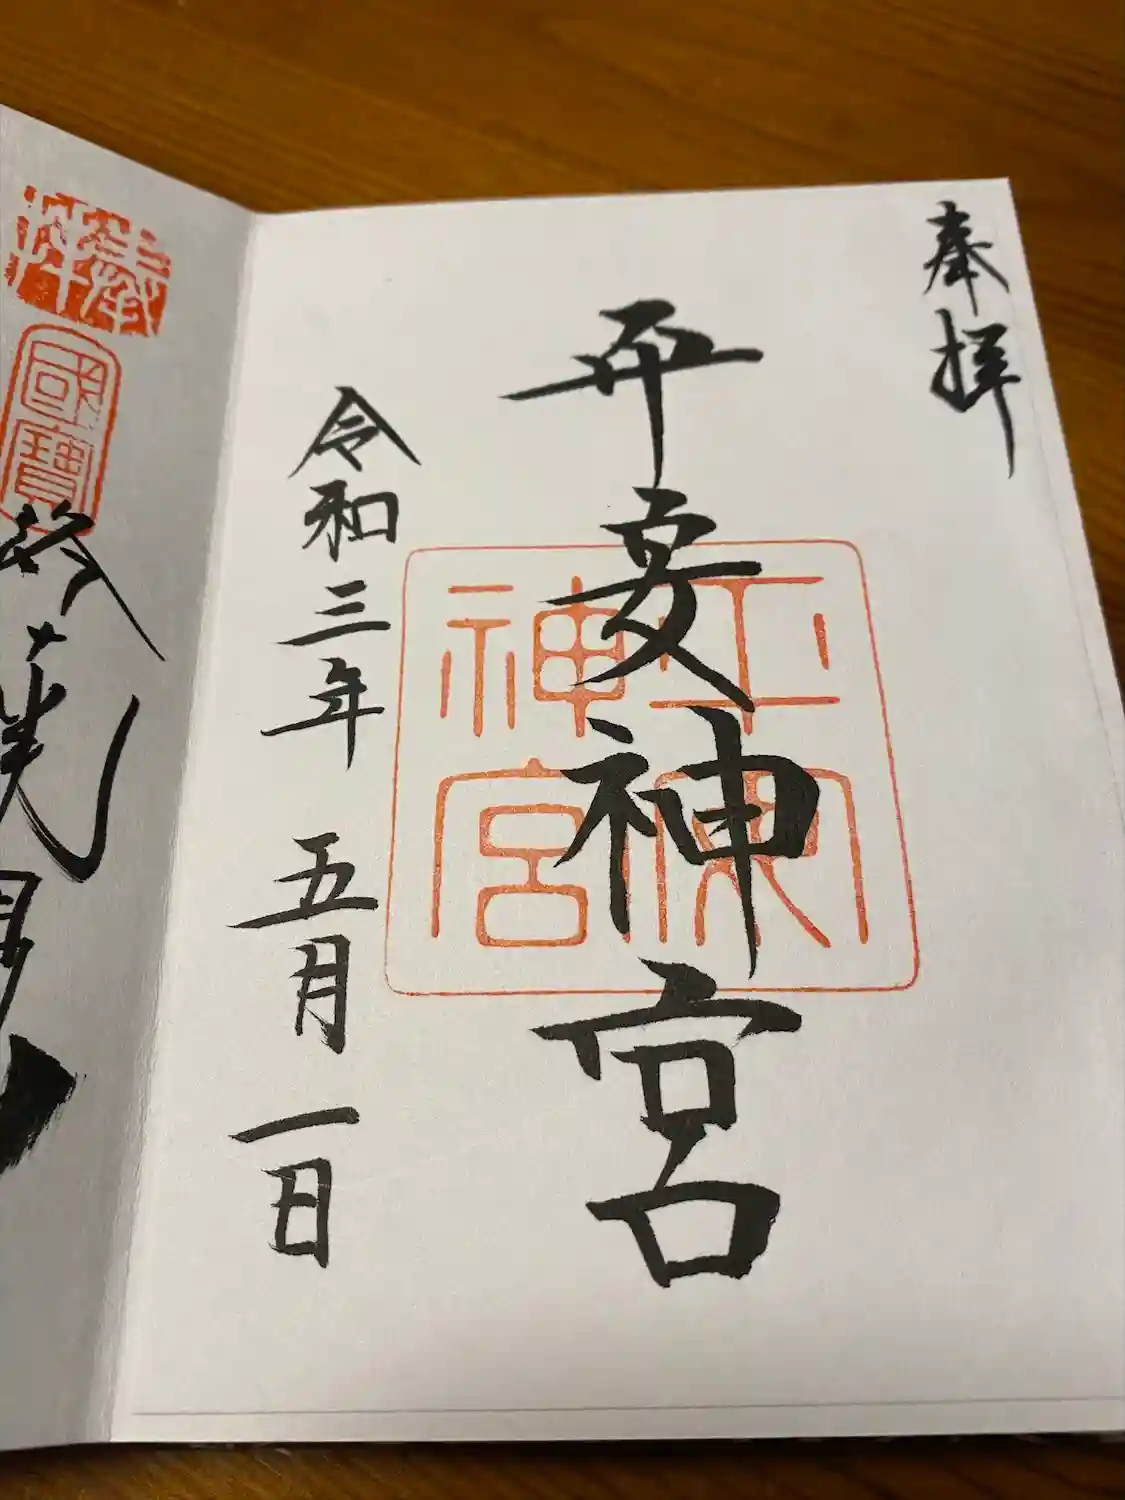 奉拝
平安神宮
平安神宮
令和三年 五月 一日
奉拝
國寶